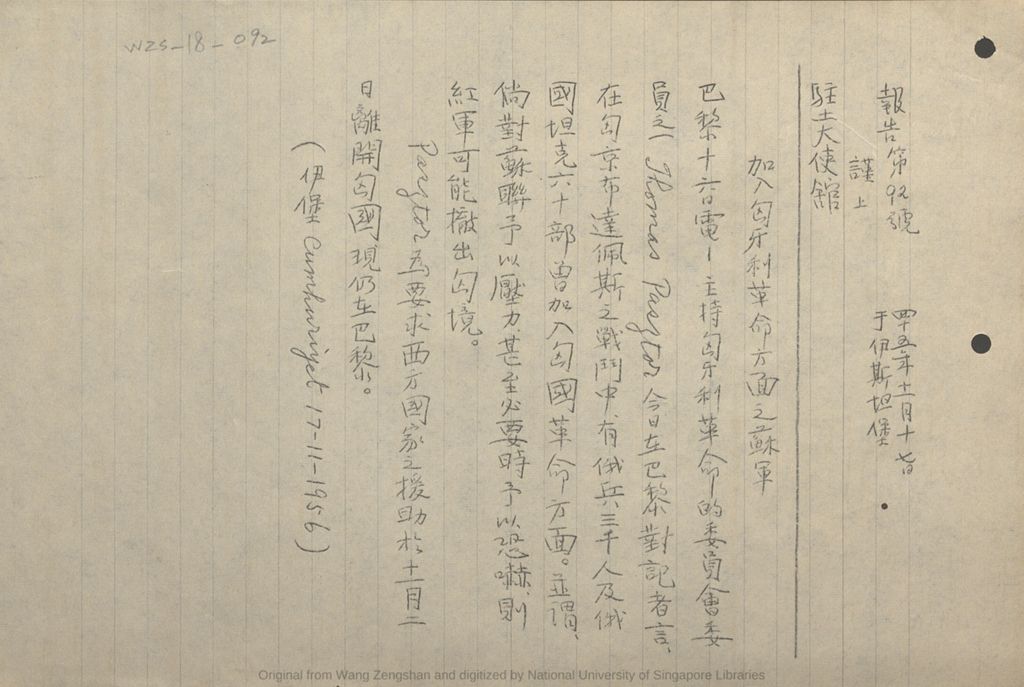 WZS-18-092
報告第92號
四十五年十一月十七日
于伊斯坦堡
謹上
駐土大使館
加入匈牙利革命方面之蘇軍
巴黎十六日電—主持匈牙利革命的委員會委
員之一 Thomas Pasztor 今日在巴黎對記者言、
在匈京布達佩斯之戰鬥中、有俄兵三千人及俄
國坦克六十部曾加入匈國革命方面。並謂、
倘對蘇聯予以壓力、甚至必要時予以恐嚇、則
紅軍可能撤出匈境。
Pasztor為要求西方國家之援助於十一月二
日離開匈國、現仍在巴黎。
(伊堡 Cumhuriyet 17-11-1956)
Original from Wang Zengshan and digitized by National University of Singapore Libraries